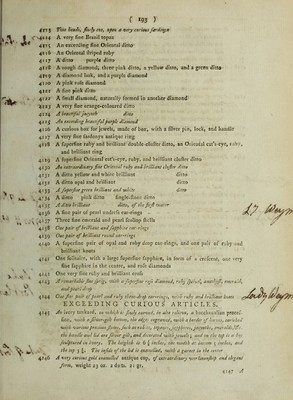 ( 193 )
4213 Two ditto, finely cut, upon a very curious sardonyx
4214 A very fine Brazil topaz
4215 An exceeding fine Oriental ditto
4216 An Oriental striped ruby
4217 A ditto purple ditto
4218 A rough diamond, three pink ditto, a yellow ditto, and a green ditto
4219 A diamond lock, and a purple diamond
4220 A pink rose diamond
4221 A fine pink ditto
4222 A small diamond, naturally formed in another diamond
4223 A very fine orange-coloured ditto
4224 A beautiful ditto
4225 An exceeding beautiful purple diamond
4226 A curious box for jewels, made of box, with a silver pin, lock, and handle
4227 A very fine sardonyx antique ring
4228 A superfine ruby and brilliant double-cluster ditto, an Oriental cat's eye, ruby,
and brilliant ring
4229 A superfine Oriental cat's-eye, ruby, and brilliant cluster ditto
4230 An extraordinary fine Oriental ruby and brilliant cluster ditto
4231 A ditto yellow and white brilliant ditto
4232 A ditto opal and brilliant ditto
4233 A superfine green brilliant and white ditto
4234 A ditto pink ditto single-stone ditto
4235 A ditto brilliant ditto, of the first water
4236 A fine pair of pearl ear-rings
4237 Three fine emerald and pearl
4238 One pair of brilliant and sapphire ear-rings
4239 One pair of brilliant round ear-rings
4240 A superfine pair of opal and ruby drop ear-rings, and one pair of ruby and
brilliant hearts
4241 One solitaire, with a large superfine sapphire, in form of a crescent, one very
fine sapphire in the centre, and rose diamonds
4242 One very fine ruby and brilliant cross
4243 A remarkable fine sprig, with a superfine opal diamond, ruby spinel, emerald,
and pearl drop
4244 One fine pair of pearl and ruby three-drop ear-rings, with ruby and brilliant bows
EXCEEDING CURIOUS ARTICLES.
4245 An ivory tankard, on which is finely carved, in alto relievo, a bacchanalian procession,
with a silver-gilt bottom, the edges engraved, with a border of
with various precious stones, such as
the handle and lid are silver gilt, and decorated with jewels; and on the top is a boy
sculptured in ivory. The heighth is 6½ inches, the width at bottom 5 inches, and
the top 3¾. The inside of the lid is enamelled, with a garnet in the center
4246 A very curious gold enamelled antique cup, of extraordinary workmanship and elegant
form, weight 23 oz. 2 dwt. 21 gr.
4247 A